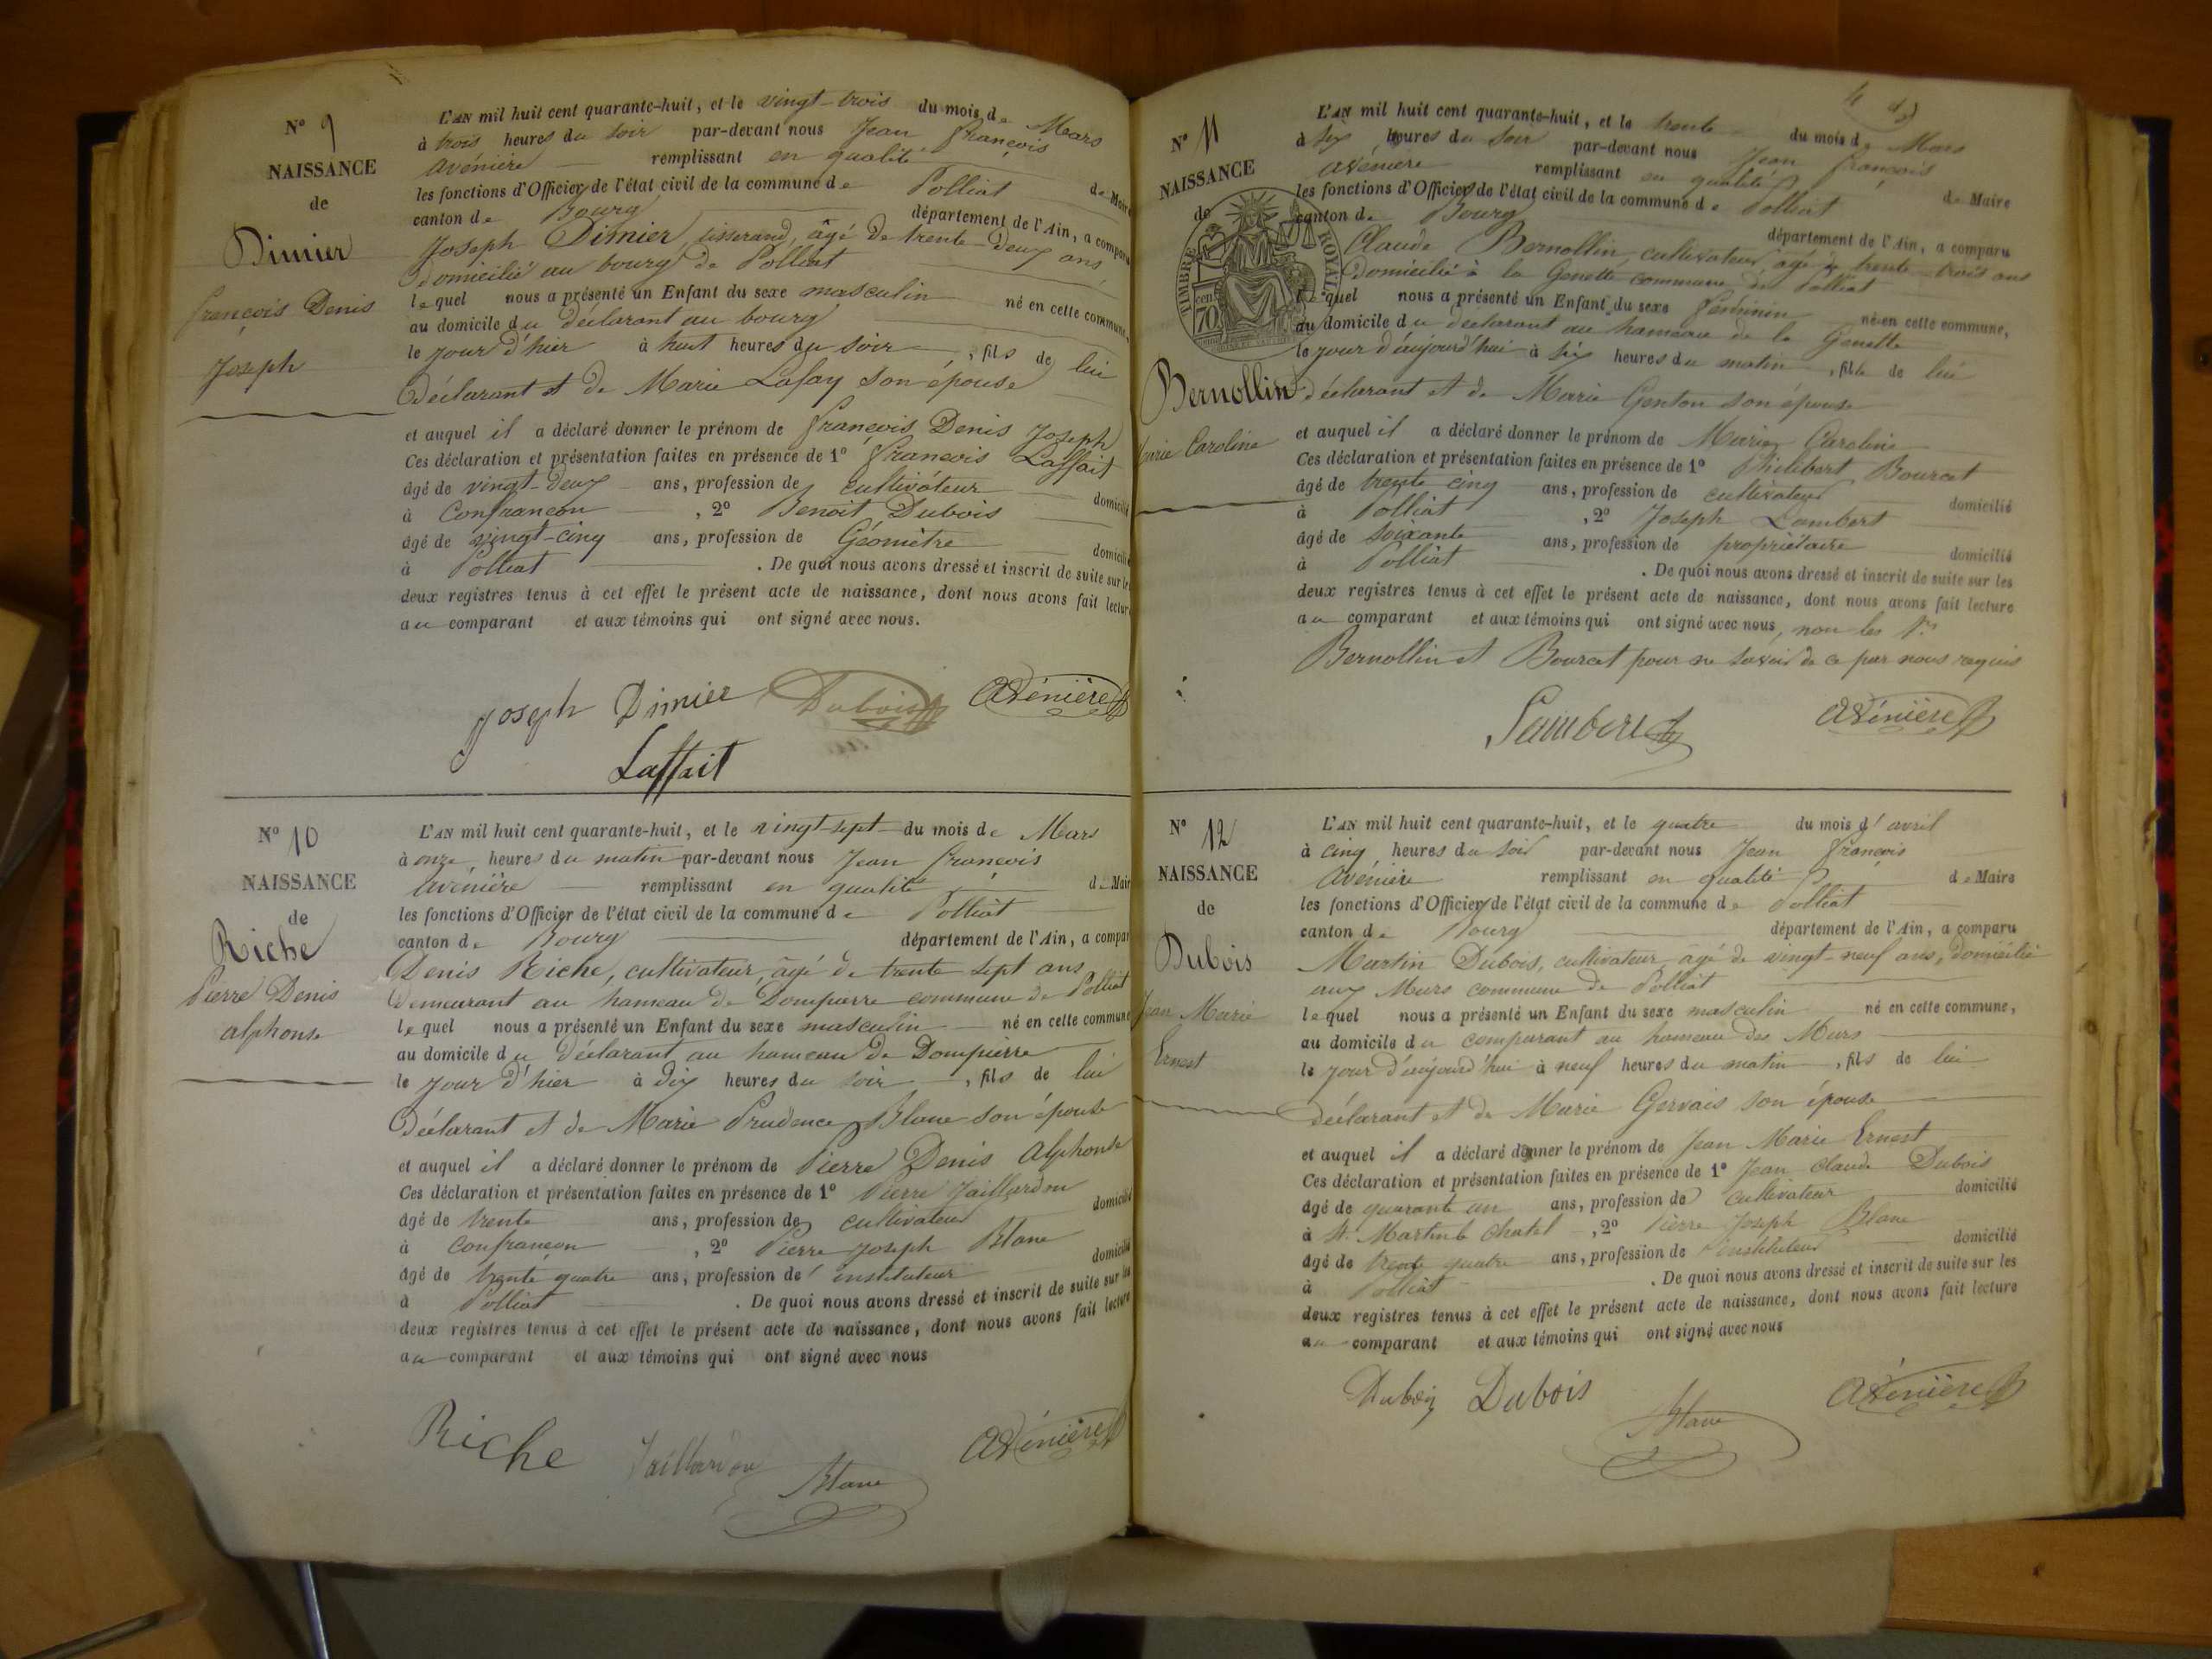 N° 9
NAISSANCE
de
Dimier
françois Denis
Joseph
L'AN mil huit cent quarante-huit, et le vingt-trois du mois de Mars
à trois heures du soir par-devant nous Jean françois
avénière remplissant en qualité de Maire
les fonctions d'Officier de l'état civil de la commune de Polliat
canton de Bourg département de l'Ain, a comparu
Joseph Dimier, tisserand, âgé de trente-deux ans
domicilié au bourg de Polliat
lequel nous a présenté un Enfant du sexe masculin né en cette commune,
au domicile du déclarant au bourg
le jour d'hier à huit heures du soir, fils de lui
Déclarant et de Marie Lafay son épouse
et auquel il a déclaré donner le prénom de françois Denis Joseph
Ces déclaration et présentation faites en présence de 1° francois Laffait
âgé de vingt-deux ans, profession de cultivateur domicilié
à Confrancon, 2° Benoit Dubois
âgé de vingt-cinq ans, profession de Géomètre domicilié
à Polliat. De quoi nous avons dressé et inscrit de suite sur les
deux registres tenus à cet effet le présent acte de naissance, dont nous avons fait lecture
au comparant et aux témoins qui ont signé avec nous.
Joseph Dimier Dubois Avénière
Laffait
N° 10
NAISSANCE
de
Riche
Pierre Denis
alphonse
L'AN mil huit cent quarante-huit, et le vingt-sept du mois de Mars
à onze heures du matin par-devant nous Jean françois
avénière remplissant en qualité de Maire
les fonctions d'Officier de l'état civil de la commune de Polliat
canton de Bourg département de l'Ain, a comparu
Denis Riche, cultivateur, âgé de trente sept ans
demeurant au hameau de Dompierre commune de Polliat
lequel nous a présenté un Enfant du sexe masculin né en cette commune
au domicile du déclarant au hameau de Dompierre
le jour d'hier à dix heures du soir, fils de lui
Déclarant et de Marie Prudence Blanc son épouse
et auquel il a déclaré donner le prénom de Pierre Denis Alphonse
Ces déclaration et présentation faites en présence de 1° Pierre Jaillardon
âgé de trente ans, profession de cultivateur domicilié
à Confrancon, 2° Pierre Joseph Blanc
âgé de trente quatre ans, profession de instituteur domicilié
à Polliat. De quoi nous avons dressé et inscrit de suite sur les
deux registres tenus à cet effet le présent acte de naissance, dont nous avons fait lecture
au comparant et aux témoins qui ont signé avec nous
Riche Jaillardon Blanc Avénière
N° 11
NAISSANCE
de
TIMBRE ROYAL
70 cen
Bernollin
Marie Caroline
L'AN mil huit cent quarante-huit, et le trente du mois de Mars
à six heures du soir par-devant nous Jean françois
avénière remplissant en qualité de Maire
les fonctions d'Officier de l'état civil de la commune de Polliat
canton de Bourg département de l'Ain, a comparu
Claude Bernollin, cultivateur, agé de trente-trois ans
domicilié à la Genette commune de Polliat
lequel nous a présenté un Enfant du sexe féminin né en cette commune,
au domicile du déclarant au hameau de la Genette
le jour d'aujourd'hui à six heures du matin, fille de lui
déclarant et de Marie Genton son épouse
et auquel il a déclaré donner le prénom de Marie Caroline
Ces déclaration et présentation faites en présence de 1° Philibert Bourcet
âgé de trente cinq ans, profession de cultivateur domicilié
à Polliat, 2° Joseph Lambert
âgé de soixante ans, profession de propriétaire domicilié
à Polliat. De quoi nous avons dressé et inscrit de suite sur les
deux registres tenus à cet effet le présent acte de naissance, dont nous avons fait lecture
au comparant et aux témoins qui ont signé avec nous, non les Srs
Bernollin et Bourcet pour ne savoir de ce par nous requis
Lambert Avénière
N° 12
NAISSANCE
de
Dubois
Jean Marie
Ernest
L'AN mil huit cent quarante-huit, et le quatre du mois d'avril
à cinq heures du soir par-devant nous Jean françois
avénière remplissant en qualité de Maire
les fonctions d'Officier de l'état civil de la commune de Polliat
canton de Bourg département de l'Ain, a comparu
Martin Dubois, cultivateur âgé de vingt-neuf ans, domicilié
aux Murs commune de Polliat
lequel nous a présenté un Enfant du sexe masculin né en cette commune,
au domicile du comparant au hameau des Murs
le jour d'aujourd'hui à neuf heures du matin, fils de lui
déclarant et de Marie Gervais son épouse
et auquel il a déclaré donner le prénom de Jean Marie Ernest
Ces déclaration et présentation faites en présence de 1° Jean Claude Dubois
âgé de quarante un ans, profession de cultivateur domicilié
à St Martin le Chatel, 2° Pierre Joseph Blanc
âgé de trente quatre ans, profession de instituteur domicilié
à Polliat. De quoi nous avons dressé et inscrit de suite sur les
deux registres tenus à cet effet le présent acte de naissance, dont nous avons fait lecture
au comparant et aux témoins qui ont signé avec nous
Dubois Dubois Blanc Avénière